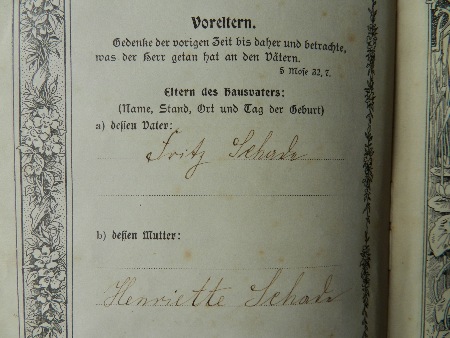 Voreltern.
Gedenke der vorigen Zeit bis daher und betrachte,
was der Herr getan hat an den Vätern.
5 Mose 32, 7.
Eltern des Hausvaters:
(Name, Stand, Ort und Tag der Geburt)
a) dessen Vater:
Fritz Schade
b) dessen Mutter:
Henriette Schade